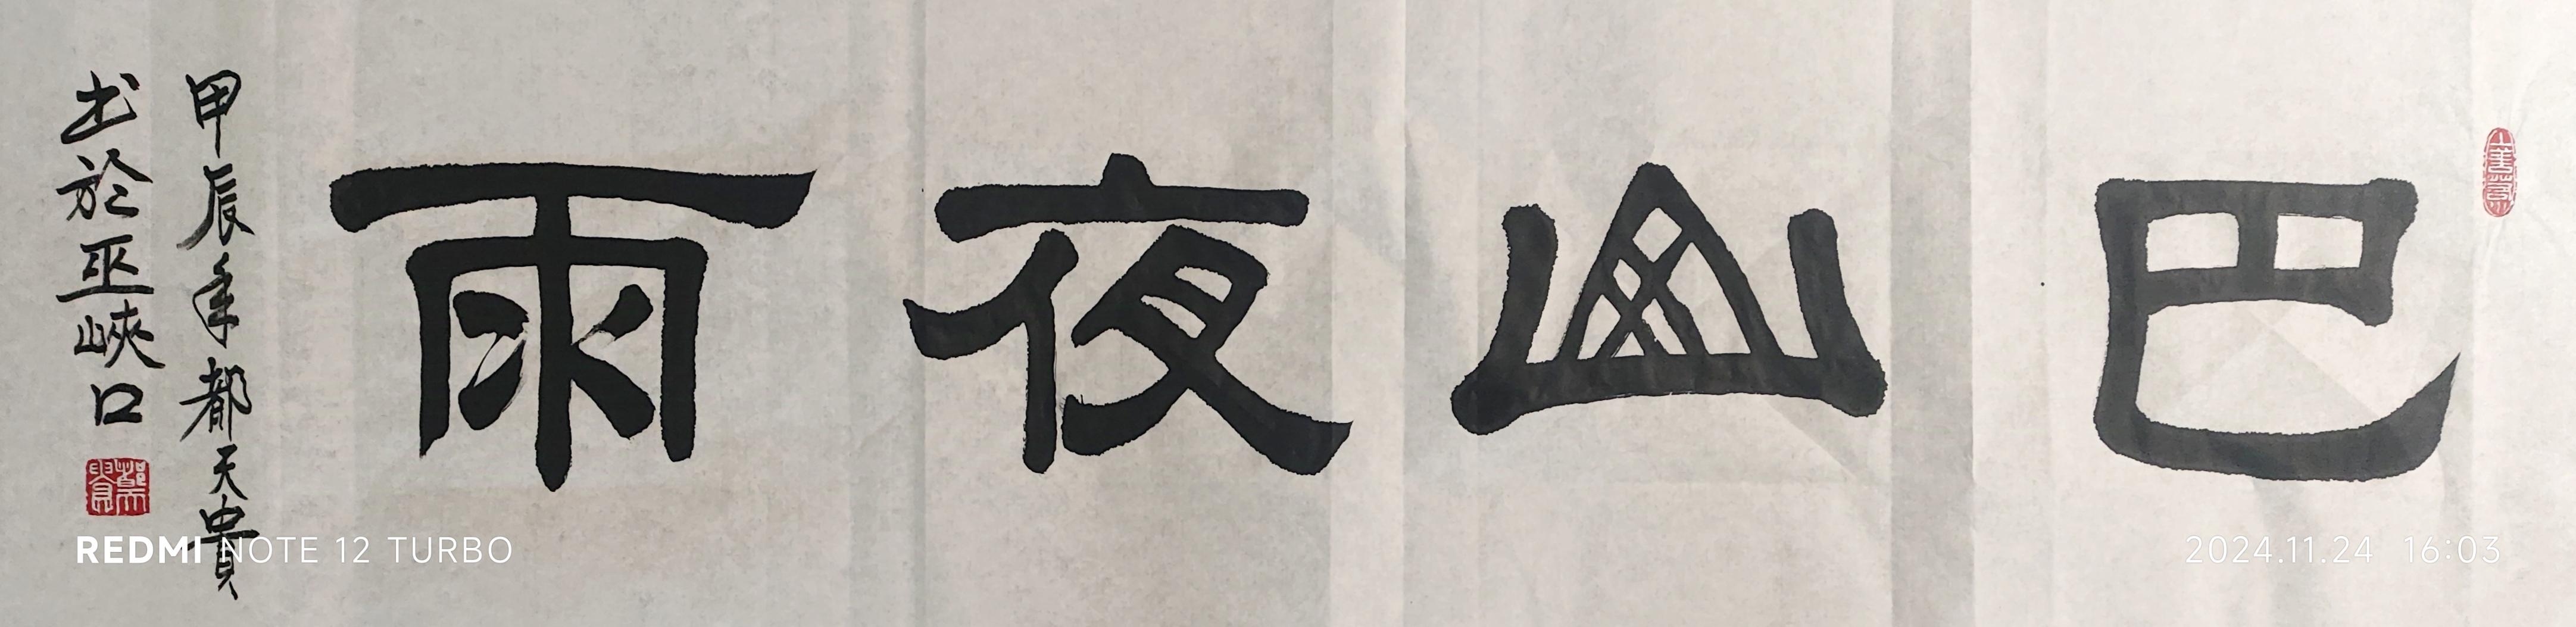 巴山夜雨
甲辰年都天貴
书於巫峽口
REDMI NOTE 12 TURBO
2024.11.24 16:03